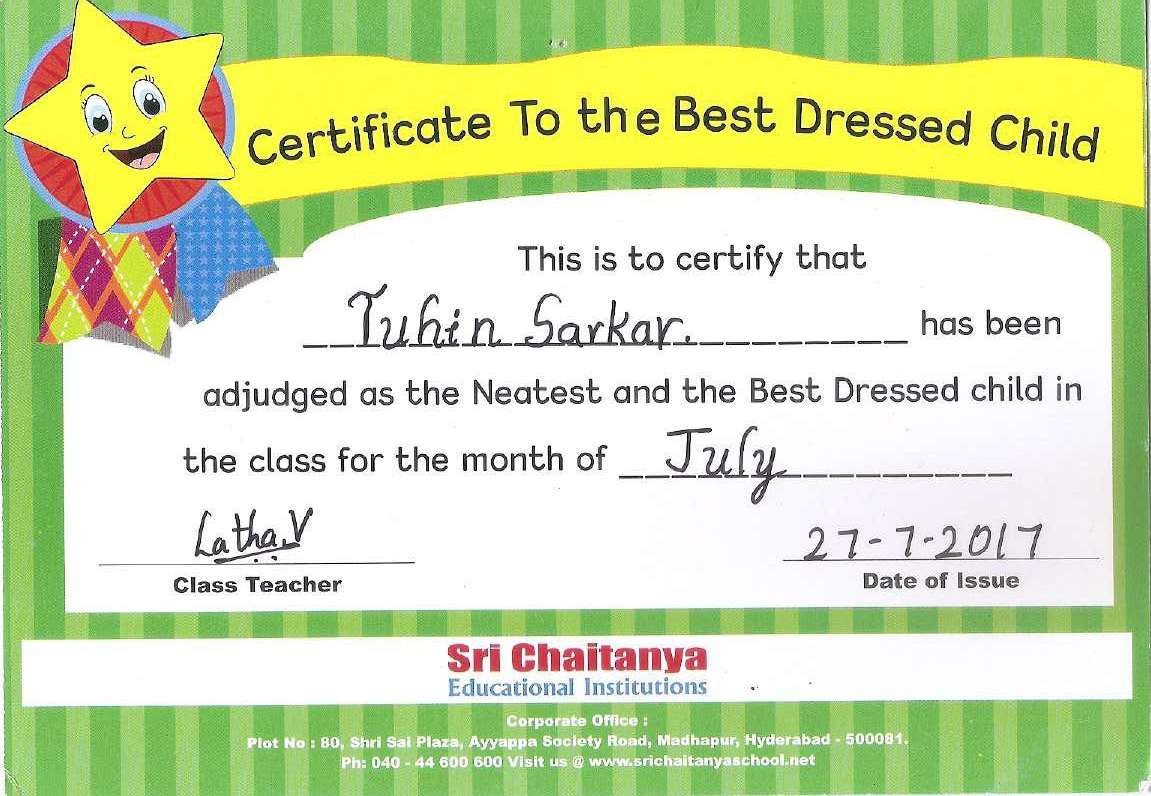 Certificate To the Best Dressed Child
This is to certify that
Tuhin Sarkar. has been
adjudged as the Neatest and the Best Dressed child in
the class for the month of July
Latha.V 27-7-2017
Class Teacher Date of Issue
Sri Chaitanya
Educational Institutions
Corporate Office :
Plot No : 80, Shri Sai Plaza, Ayyappa Society Road, Madhapur, Hyderabad - 500081.
Ph: 040 - 44 600 600 Visit us @ www.srichaitanyaschool.net